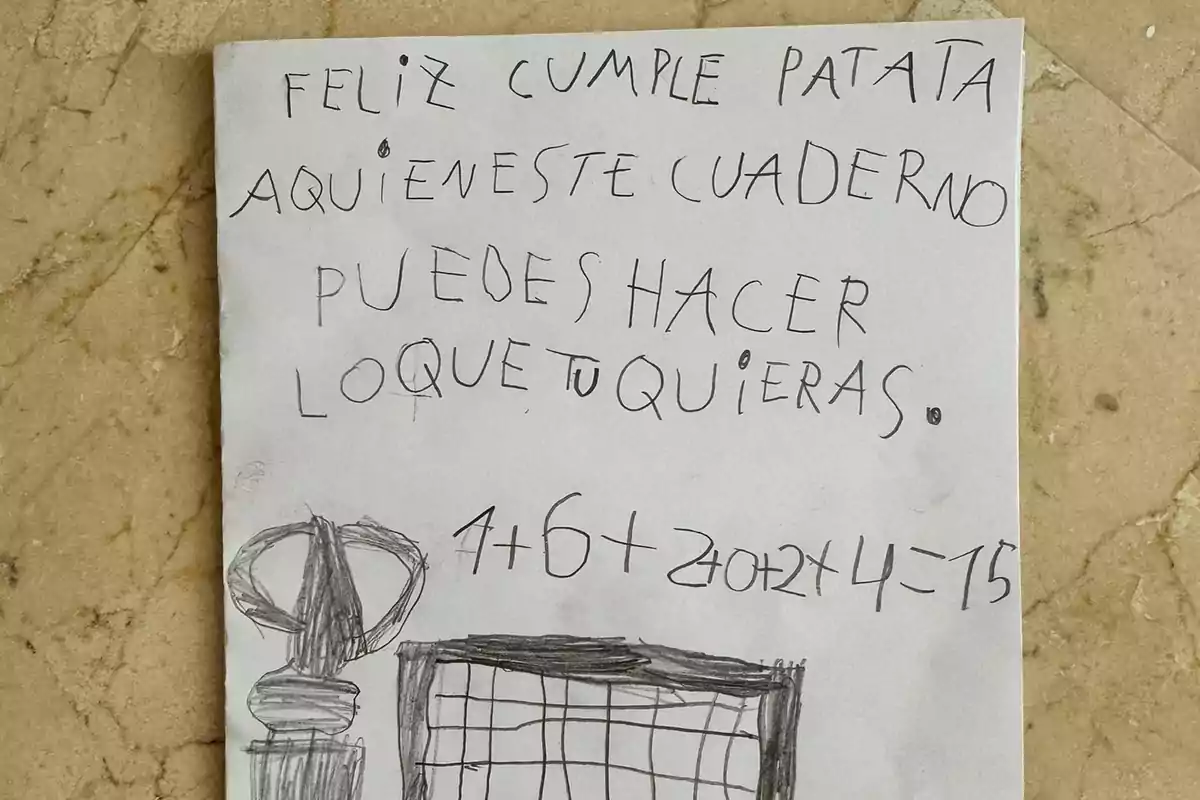 FELiZ CUMPLE PATATA
AQUiENESTE CUADERNO
PUEDES HACER
LO QUE TU QUiERAS.
1+6+2+0+2+4=15